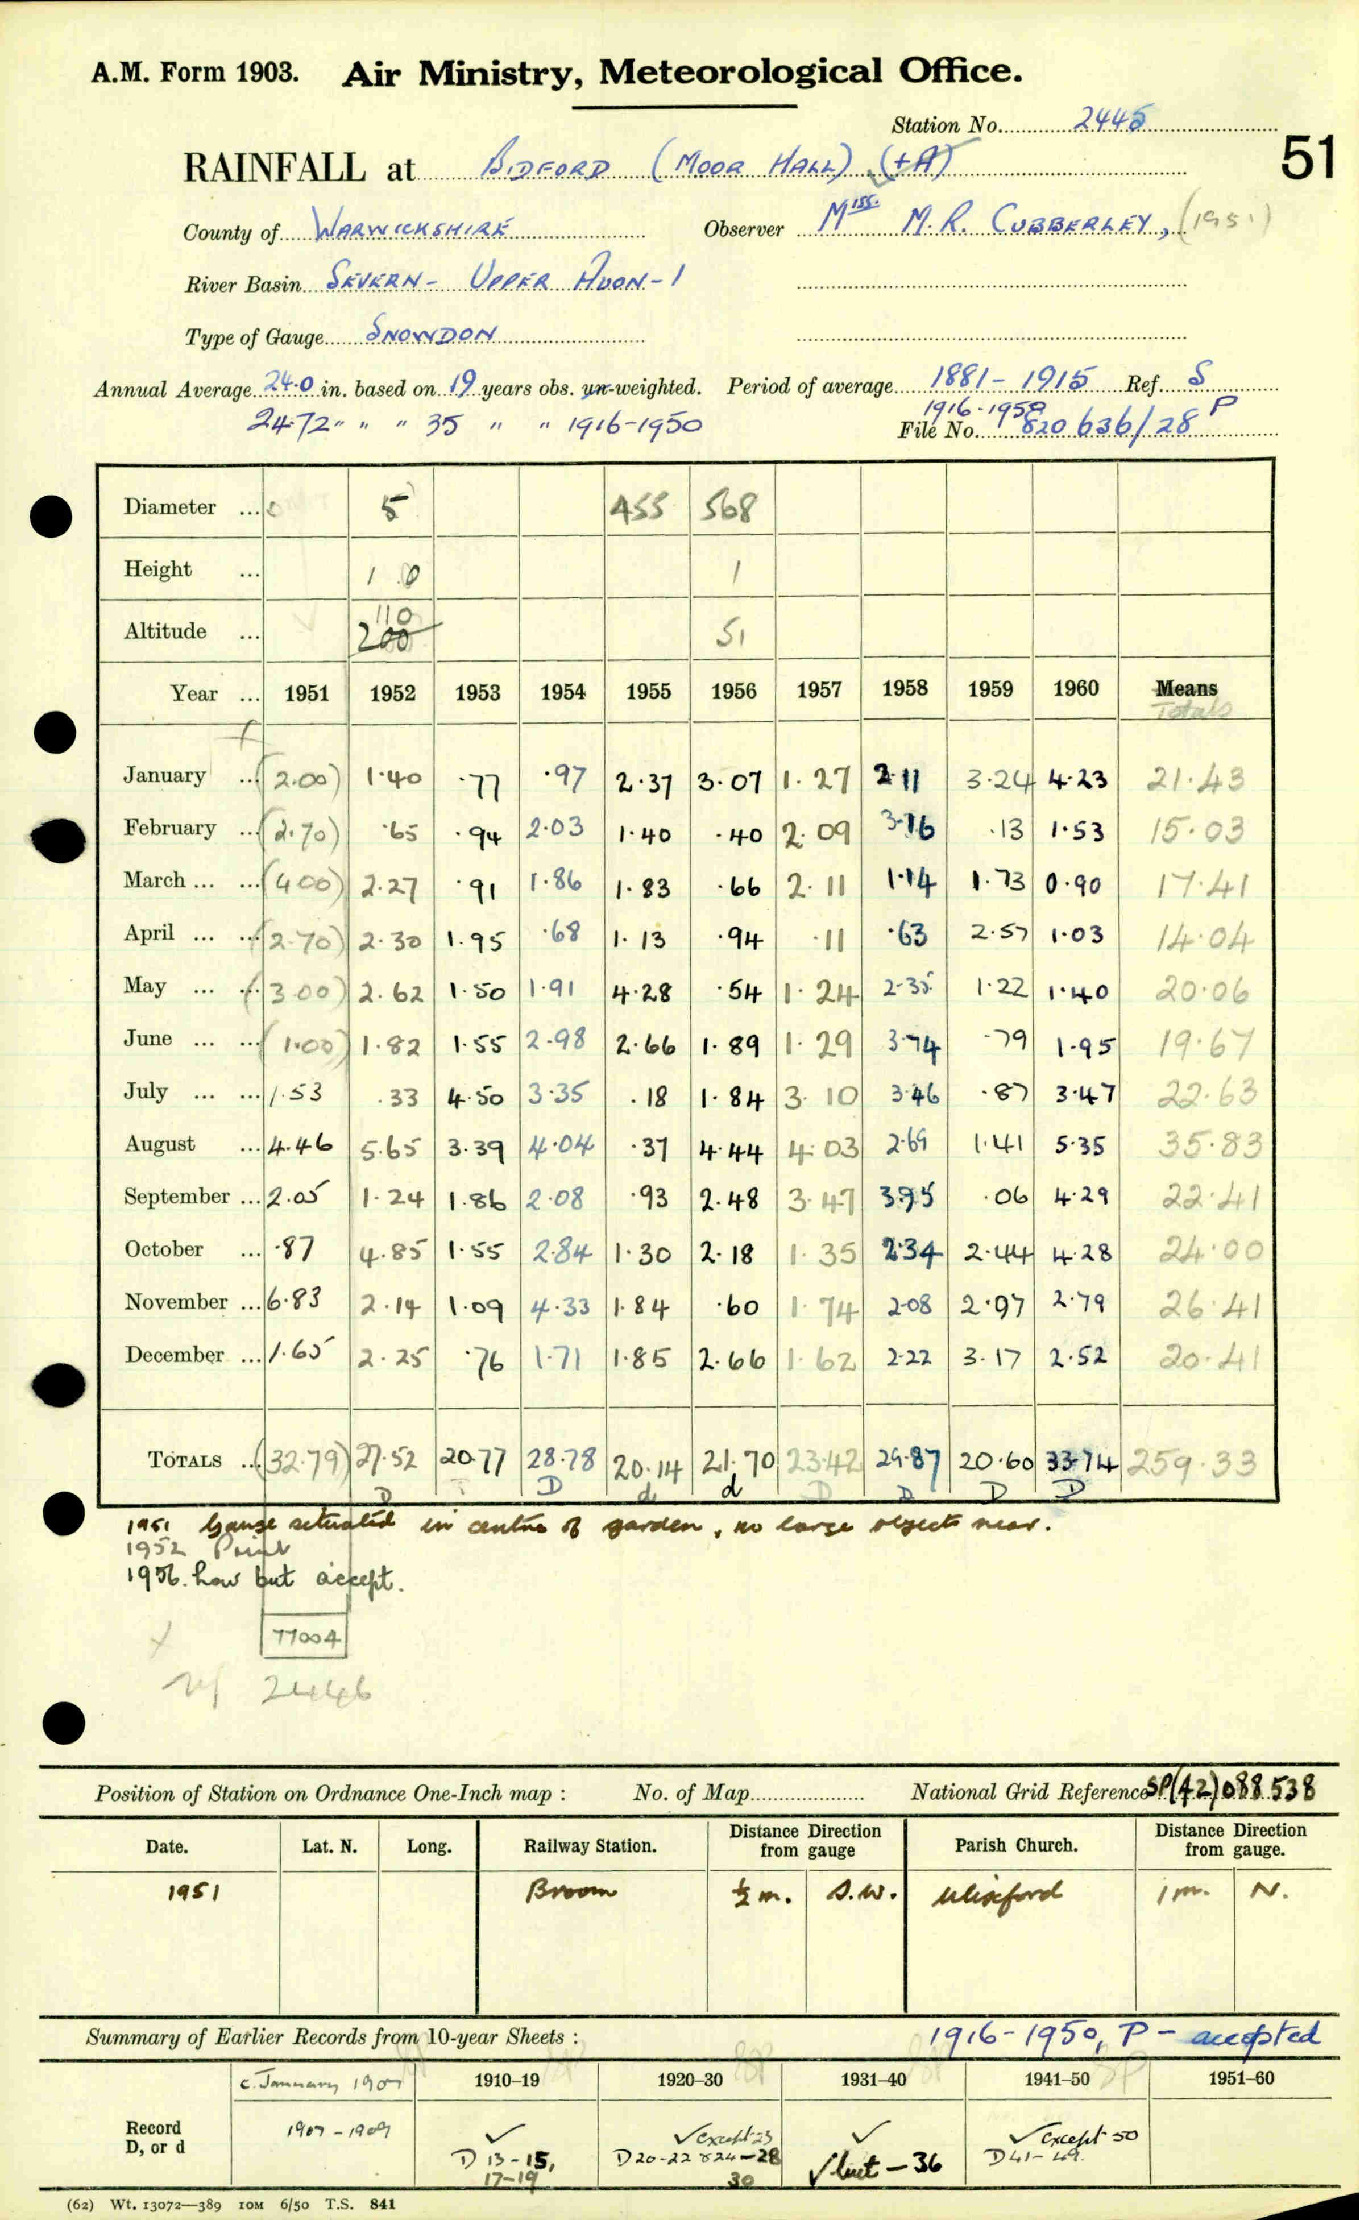 A.M. Form 1903. Air Ministry, Meteorological Office.
Station No. 2445
51
RAINFALL at BIDFORD (MOOR HALL) (+A)
County of WARWICKSHIRE Observer Miss. M.R. CUBBERLEY, (1951)
River Basin SEVERN - UPPER AVON - 1
Type of Gauge SNOWDON
Annual Average 24.0 in. based on 19 years obs. un-weighted. Period of average 1881 - 1915 Ref. S
24.72 " " " 35 " " 1916-1950 1916-1950 P
File No. 820636/28
Diameter ... 5 455 568
Height ... 1 0 1
Altitude ... 110 200 51
Year ... 1951 1952 1953 1954 1955 1956 1957 1958 1959 1960 Means
Totals
January ... (2.00) 1.40 .77 .97 2.37 3.07 1.27 2.11 3.24 4.23 21.43
February ... (2.70) .65 .94 2.03 1.40 .40 2.09 3.76 .13 1.53 15.03
March ... ... (4.00) 2.27 .91 1.86 1.83 .66 2.11 1.14 1.73 0.90 17.41
April ... ... (2.70) 2.30 1.95 .68 1.13 .94 .11 .63 2.57 1.03 14.04
May ... ... (3.00) 2.62 1.50 1.91 4.28 .54 1.24 2.35 1.22 1.40 20.06
June ... ... (1.00) 1.82 1.55 2.98 2.66 1.89 1.29 3.74 .79 1.95 19.67
July ... ... 1.53 .33 4.50 3.35 .18 1.84 3.10 3.46 .87 3.47 22.63
August ... 4.46 5.65 3.39 4.04 .37 4.44 4.03 2.69 1.41 5.35 35.83
September ... 2.05 1.24 1.86 2.08 .93 2.48 3.47 3.95 .06 4.29 22.41
October ... .87 4.85 1.55 2.84 1.30 2.18 1.35 2.34 2.44 4.28 24.00
November ... 6.83 2.14 1.09 4.33 1.84 .60 1.74 2.08 2.97 2.79 26.41
December ... 1.65 2.25 .76 1.71 1.85 2.66 1.62 2.22 3.17 2.52 20.41
TOTALS ... (32.79) 27.52 20.77 28.78 20.14 21.70 23.42 29.87 20.60 33.74 259.33
D D d d D D D D
1951 Gauge situated in centre of garden, no large objects near.
1952 Point
1956. Low but accept.
77004
2446
Position of Station on Ordnance One-Inch map : No. of Map National Grid Reference SP(42)088538
Date. Lat. N. Long. Railway Station. Distance from gauge Direction Parish Church. Distance from gauge. Direction
1951 Broom ½ m. S.W. Wixford 1 m. N.
Summary of Earlier Records from 10-year Sheets : 1916-1950, P - accepted
c. January 1907 1910–19 1920–30 1931–40 1941–50 1951–60
Record D, or d
1907 - 1909
✓ D 13-15, 17-19
✓ except 23 D20-22 & 24-28 30
✓ ✓ but - 36
✓ except 50 D41-49.
(62) Wt. 13072—389 10M 6/50 T.S. 841